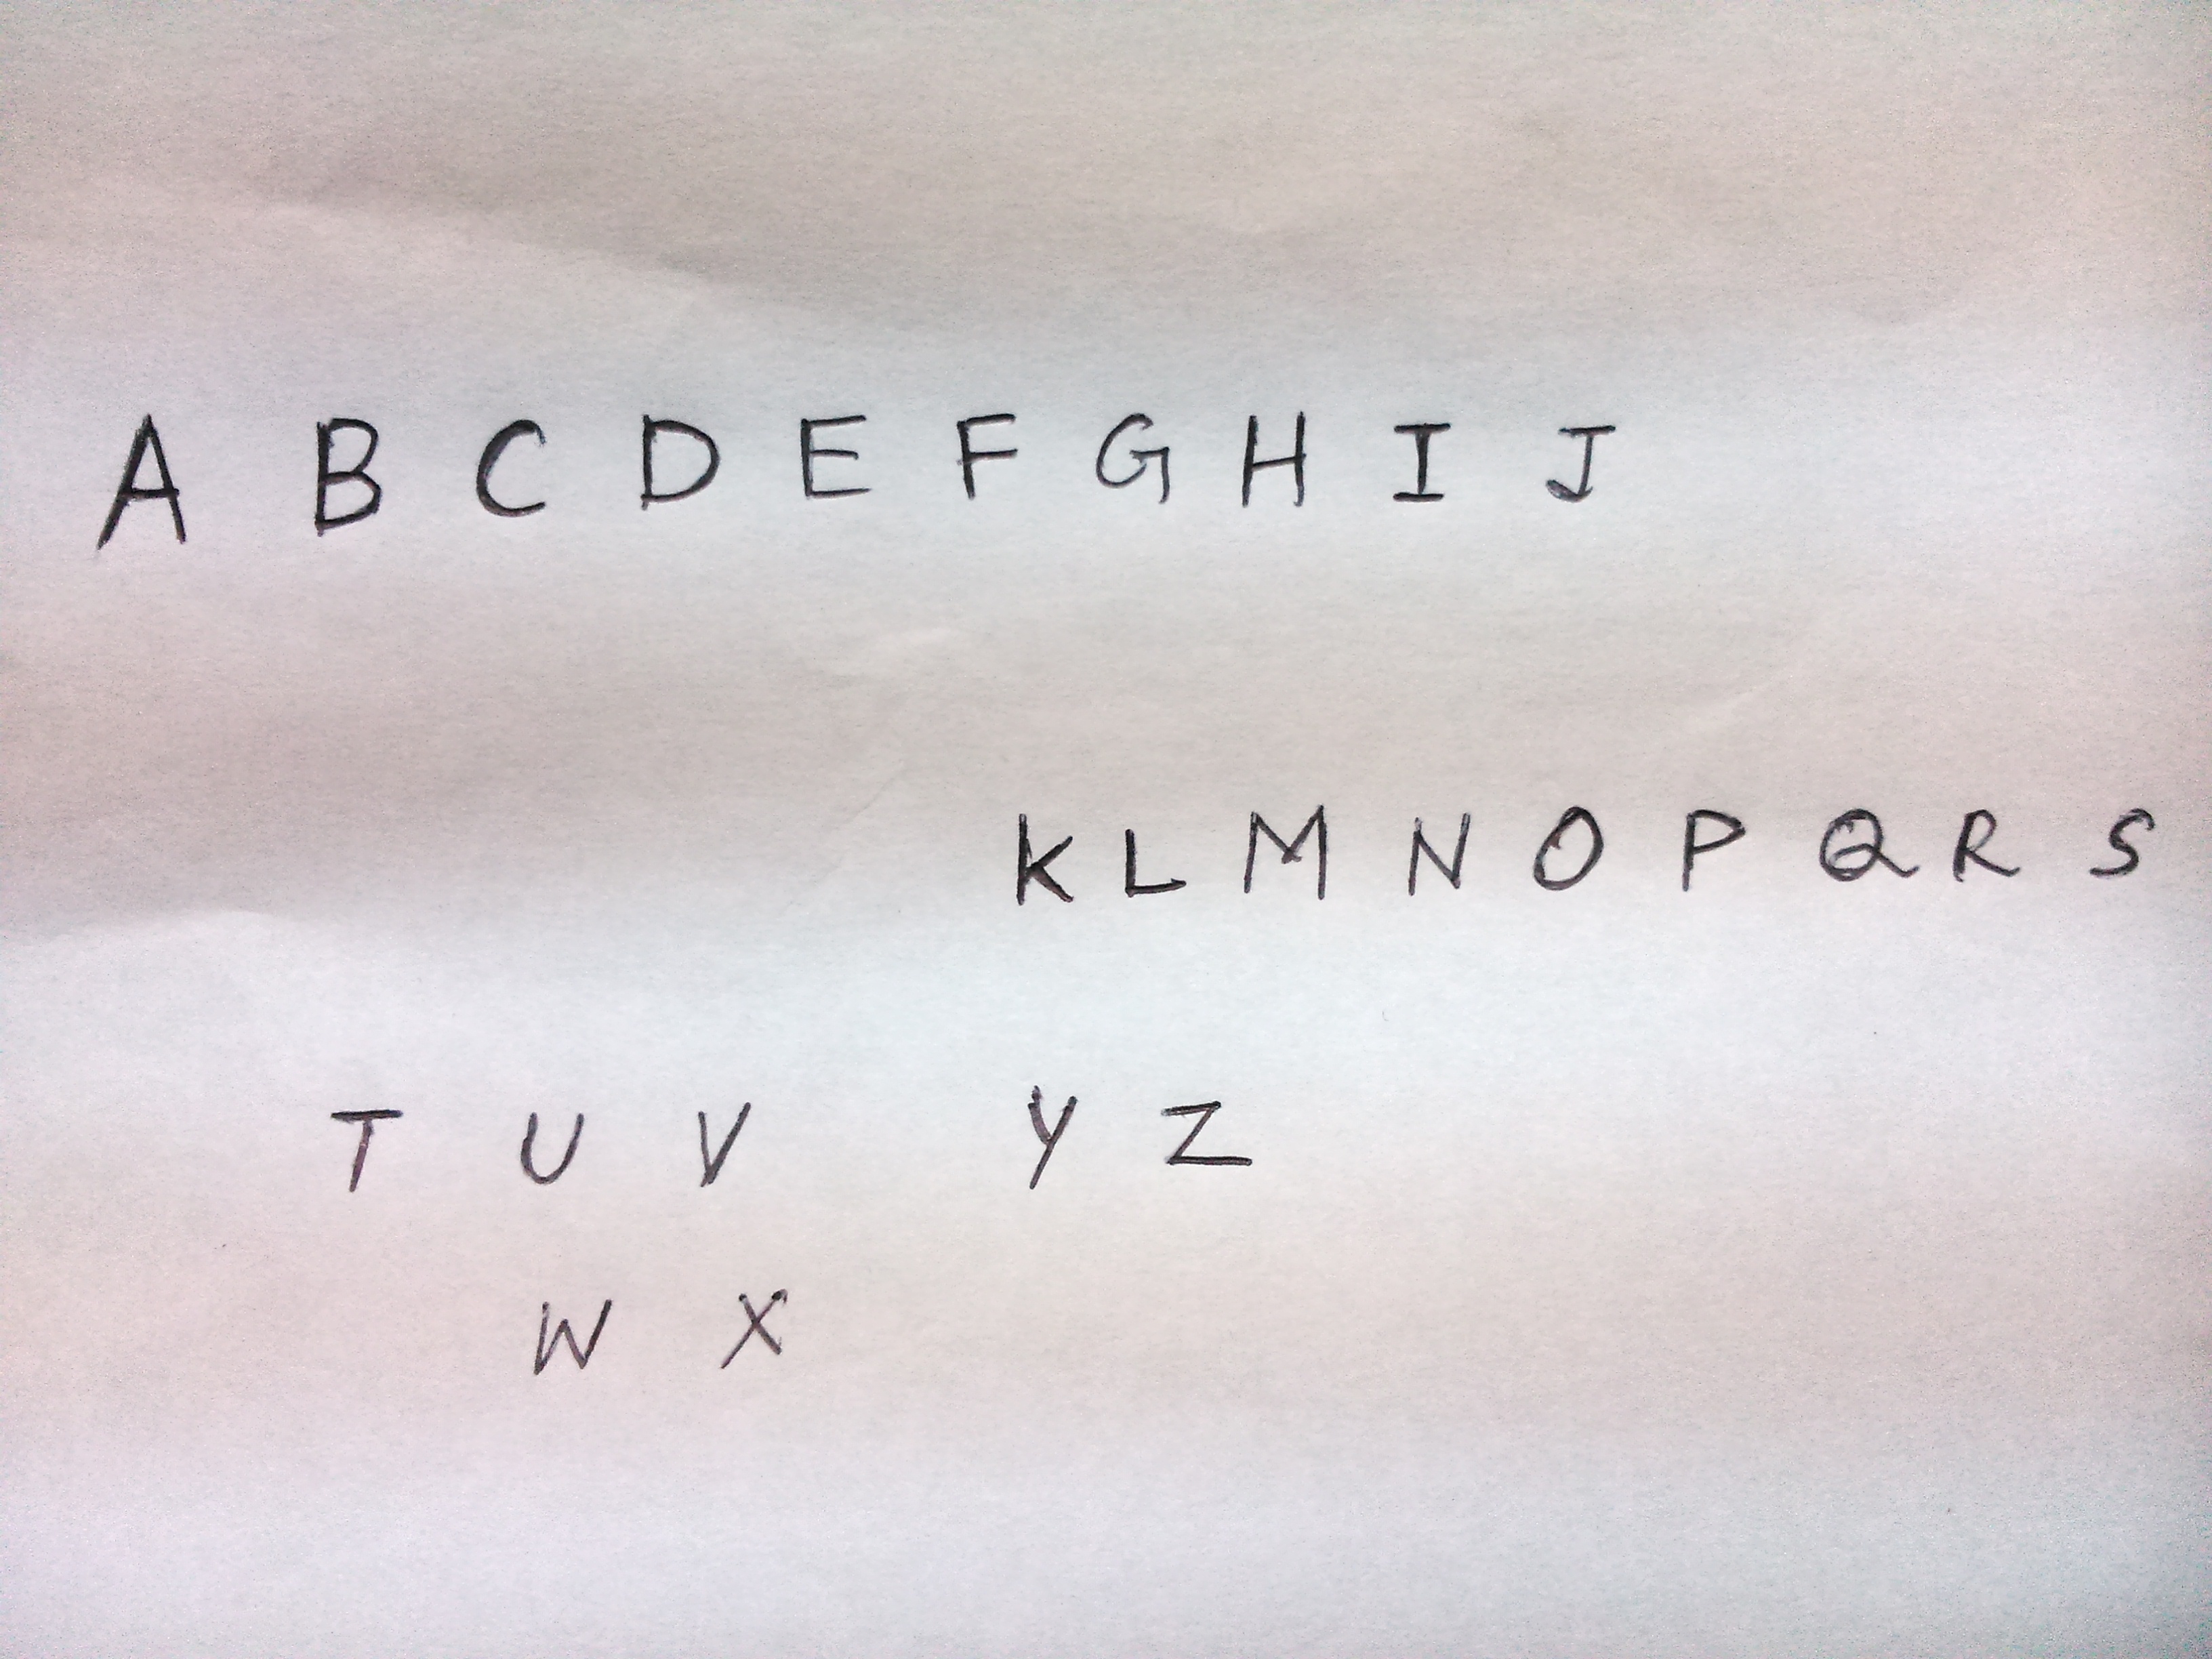 A B C D E F G H I J
K L M N O P Q R S
T U V Y Z
W X